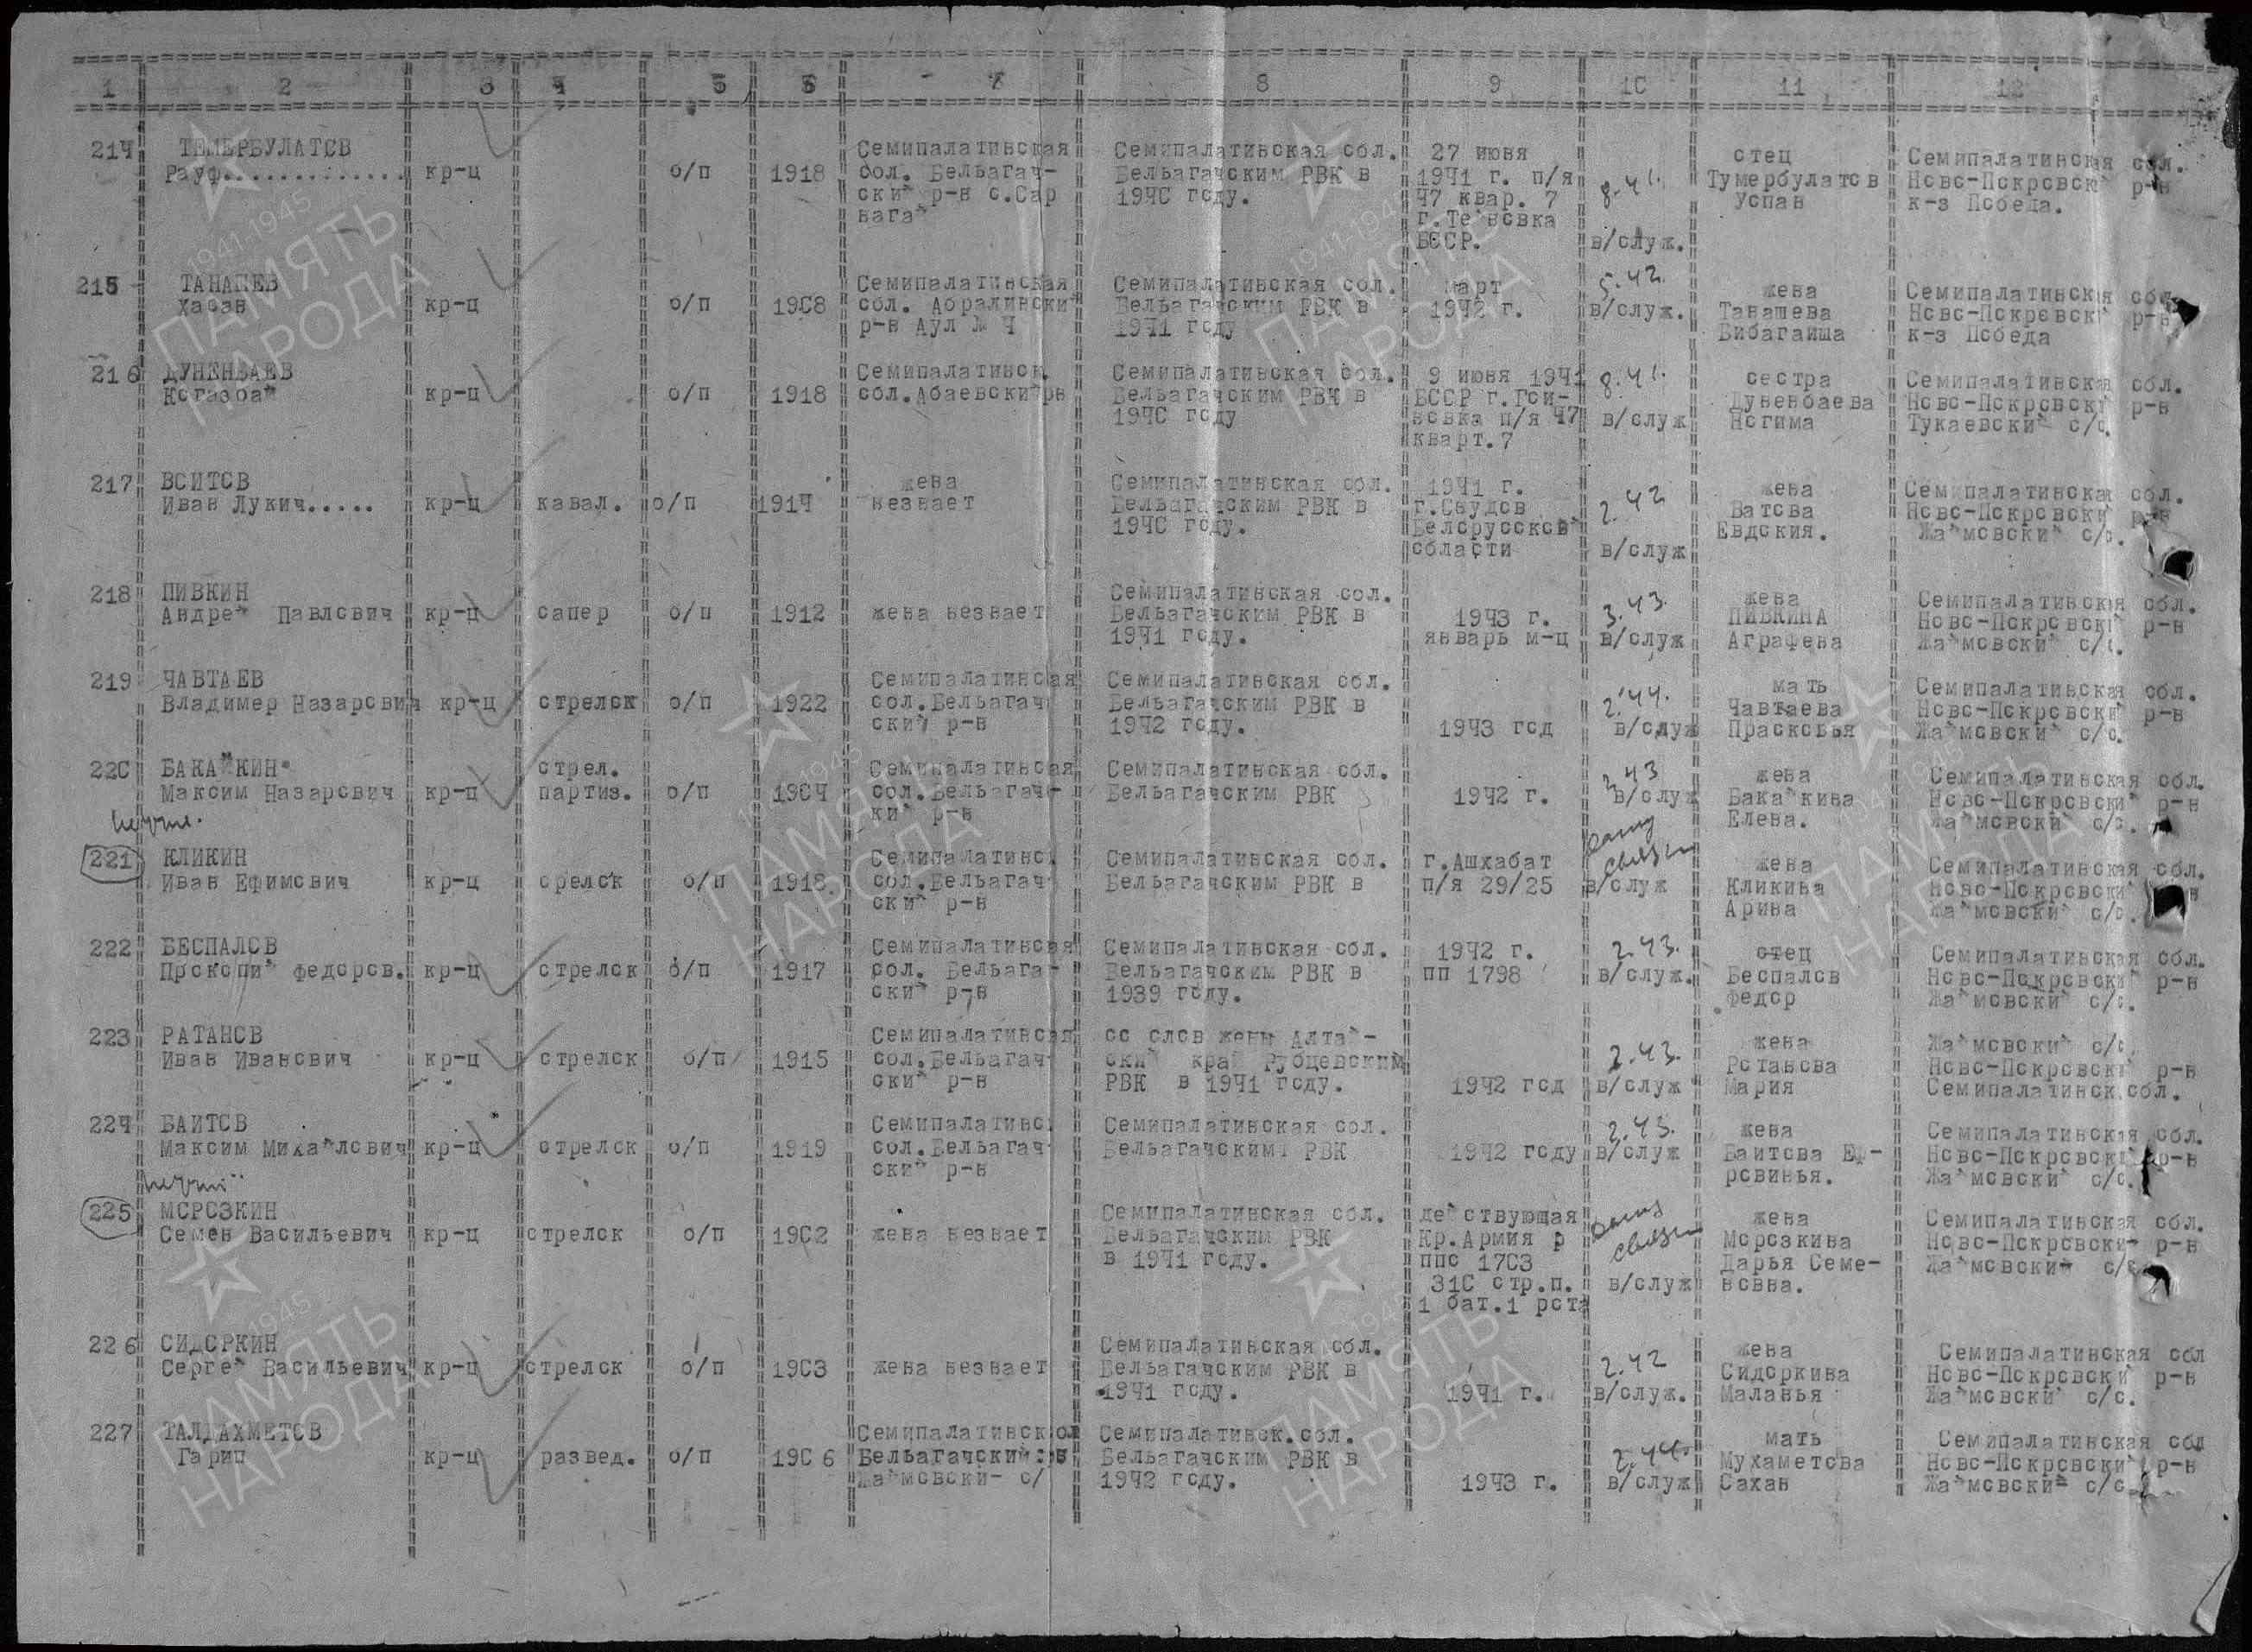 1 2 3 4 5 6 7 8 9 10 11 12
214 ТЕМЕРБУЛАТОВ Семипалатинская Семипалатинская обл. 27 июня отец Семипалатинская обл.
Рауф.............. кр-ц о/п 1918 обл. Бельагач- Бельагачским РВК в 1941 г. п/я 8.41. Тумербулатов Ново-Покровск р-н
ский р-н с.Сар 1940 году. 47 квар. 7 Успан к-з Победа.
вагай г.Тейновка
БССР. в/служ.
215 ТАНАШЕВ Семипалатинская Семипалатинская обл. март 5.42. жена Семипалатинская обл.
Хасэн кр-ц о/п 1908 обл. Абралински Бельагачским РВК в 1942 г. в/служ. Танашева Ново-Покровски р-н
р-н Аул № 4 1941 году Бибагаиша к-з Победа
216 ДУНЕНБАЕВ Семипалатинск. Семипалатинская обл. 9 июня 1941 8.41. сестра Семипалатинская обл.
Когазбай кр-ц о/п 1918 обл.Абаевскийрн Бельагачским РВК в БССР г.Гои- Дуненбаева Ново-Покровский р-н
1940 году новка п/я 47 в/служ Ногима Тукаевский с/с.
кварт.7
217 ВОИТОВ жена Семипалатинская обл. 1941 г. 2.42 жена Семипалатинская обл.
Иван Лукич..... кр-ц кавал. о/п 1914 незнает Бельагачским РВК в г.Саудов Ватова Ново-Покровски р-н
1940 году. Белоруской Евдокия. Жаймовский с/с.
области в/служ
218 ПИВКИН Семипалатинская обл. жена Семипалатинская обл.
Андрей Павлович кр-ц сапер о/п 1912 жена незнает Бельагачским РВК в 1943 г. 3.43. ПИВКИНА Ново-Покровски р-н
1941 году. январь м-ц в/служ Аграфена Жаймовский с/с.
219 ЧАВТАЕВ Семипалатинская Семипалатинская обл. мать Семипалатинская обл.
Владимер Назарович кр-ц стрелок о/п 1922 обл.Бельагач Бельагачским РВК в 2.44. Чавтаева Ново-Покровский р-н
ский р-н 1942 году. 1943 год в/служ Прасковья Жаймовский с/с.
220 БАКАЙКИН стрел. Семипалатинская Семипалатинская обл. 2.43 жена Семипалатинская обл.
Максим Назарович кр-ц партиз. о/п 1904 обл.Бельагачс- Бельагачским РВК 1942 г. в/служ Бакайкина Ново-Покровский р-н
кий р-н Елена. Жаймовский с/с.
221 КЛИКИН Семипалатинск Семипалатинская обл. г.Ашхабат связи жена Семипалатинская обл.
Иван Ефимович кр-ц срелок о/п 1918 обл.Бельагач Бельагачским РВК в п/я 29/25 в/служ Кликина Ново-Покровский р-н
ский р-н Арина Жаймовский с/с.
222 БЕСПАЛОВ Семипалатинская Семипалатинская обл. 1942 г. 2.43. отец Семипалатинская обл.
Прокопий федоров. кр-ц стрелок о/п 1917 обл. Бельага- Бельагачским РВК в пп 1798 в/служ. Беспалов Ново-Покровский р-н
ский р-н 1939 году. федор Жаймовский с/с.
223 РАТАНОВ Семипалатинская со слов жены Алтай- жена Жаймовский с/с.
Иван Иванович кр-ц стрелок о/п 1915 обл.Бельагач ский край Рубцевским 2.43. Ротанова Ново-Покровски р-н
ский р-н РВК в 1941 году. 1942 год в/служ Мария Семипалатинск обл.
224 БАИТОВ Семипалатинс Семипалатинская обл. 2.43. жена Семипалатинская обл.
Максим Михайлович кр-ц стрелок о/п 1919 обл.Бельагач Бельагачским РВК 1942 году в/служ Баитова Ер- Ново-Покровски р-н
ский р-н ровинья. Жаймовский с/с.
225 МОРОЗКИН Семипалатинская обл. действующая связи жена Семипалатинская обл.
Семен Васильевич кр-ц стрелок о/п 1902 жена незнает Бельагачским РВК Кр.Армия р Морозкина Ново-Покровски- р-н
в 1941 году. ппс 1703 Дарья Семе- Жаймовский с/с
310 стр.п. в/служ новна.
1 бат.1 рота
226 СИДОРКИН Семипалатинская обл. жена Семипалатинская обл
Сергей Васильевич кр-ц стрелок о/п 1903 жена незнает Бельагачским РВК в 2.42 Сидоркина Ново-Покровский р-н
1941 году. 1941 г. в/служ. Маланья Жаймовский с/с.
227 ТАЛДАХМЕТОВ Семипалатинск ол Семипалатинск.обл. мать Семипалатинская обл
Гарип кр-ц развед. о/п 1906 Бельагачский Бельагачским РВК в 2.44. Мухаметова Ново-Покровский р-н
Жаймовски- с/ 1942 году. 1943 г. в/служ Сахан Жаймовский с/с